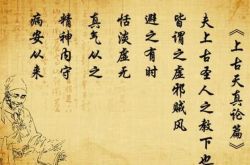 《上古天真论篇》
夫上古圣人之教下也
皆谓之虚邪贼风
避之有时
恬淡虚无
真气从之
精神内守
病安从来